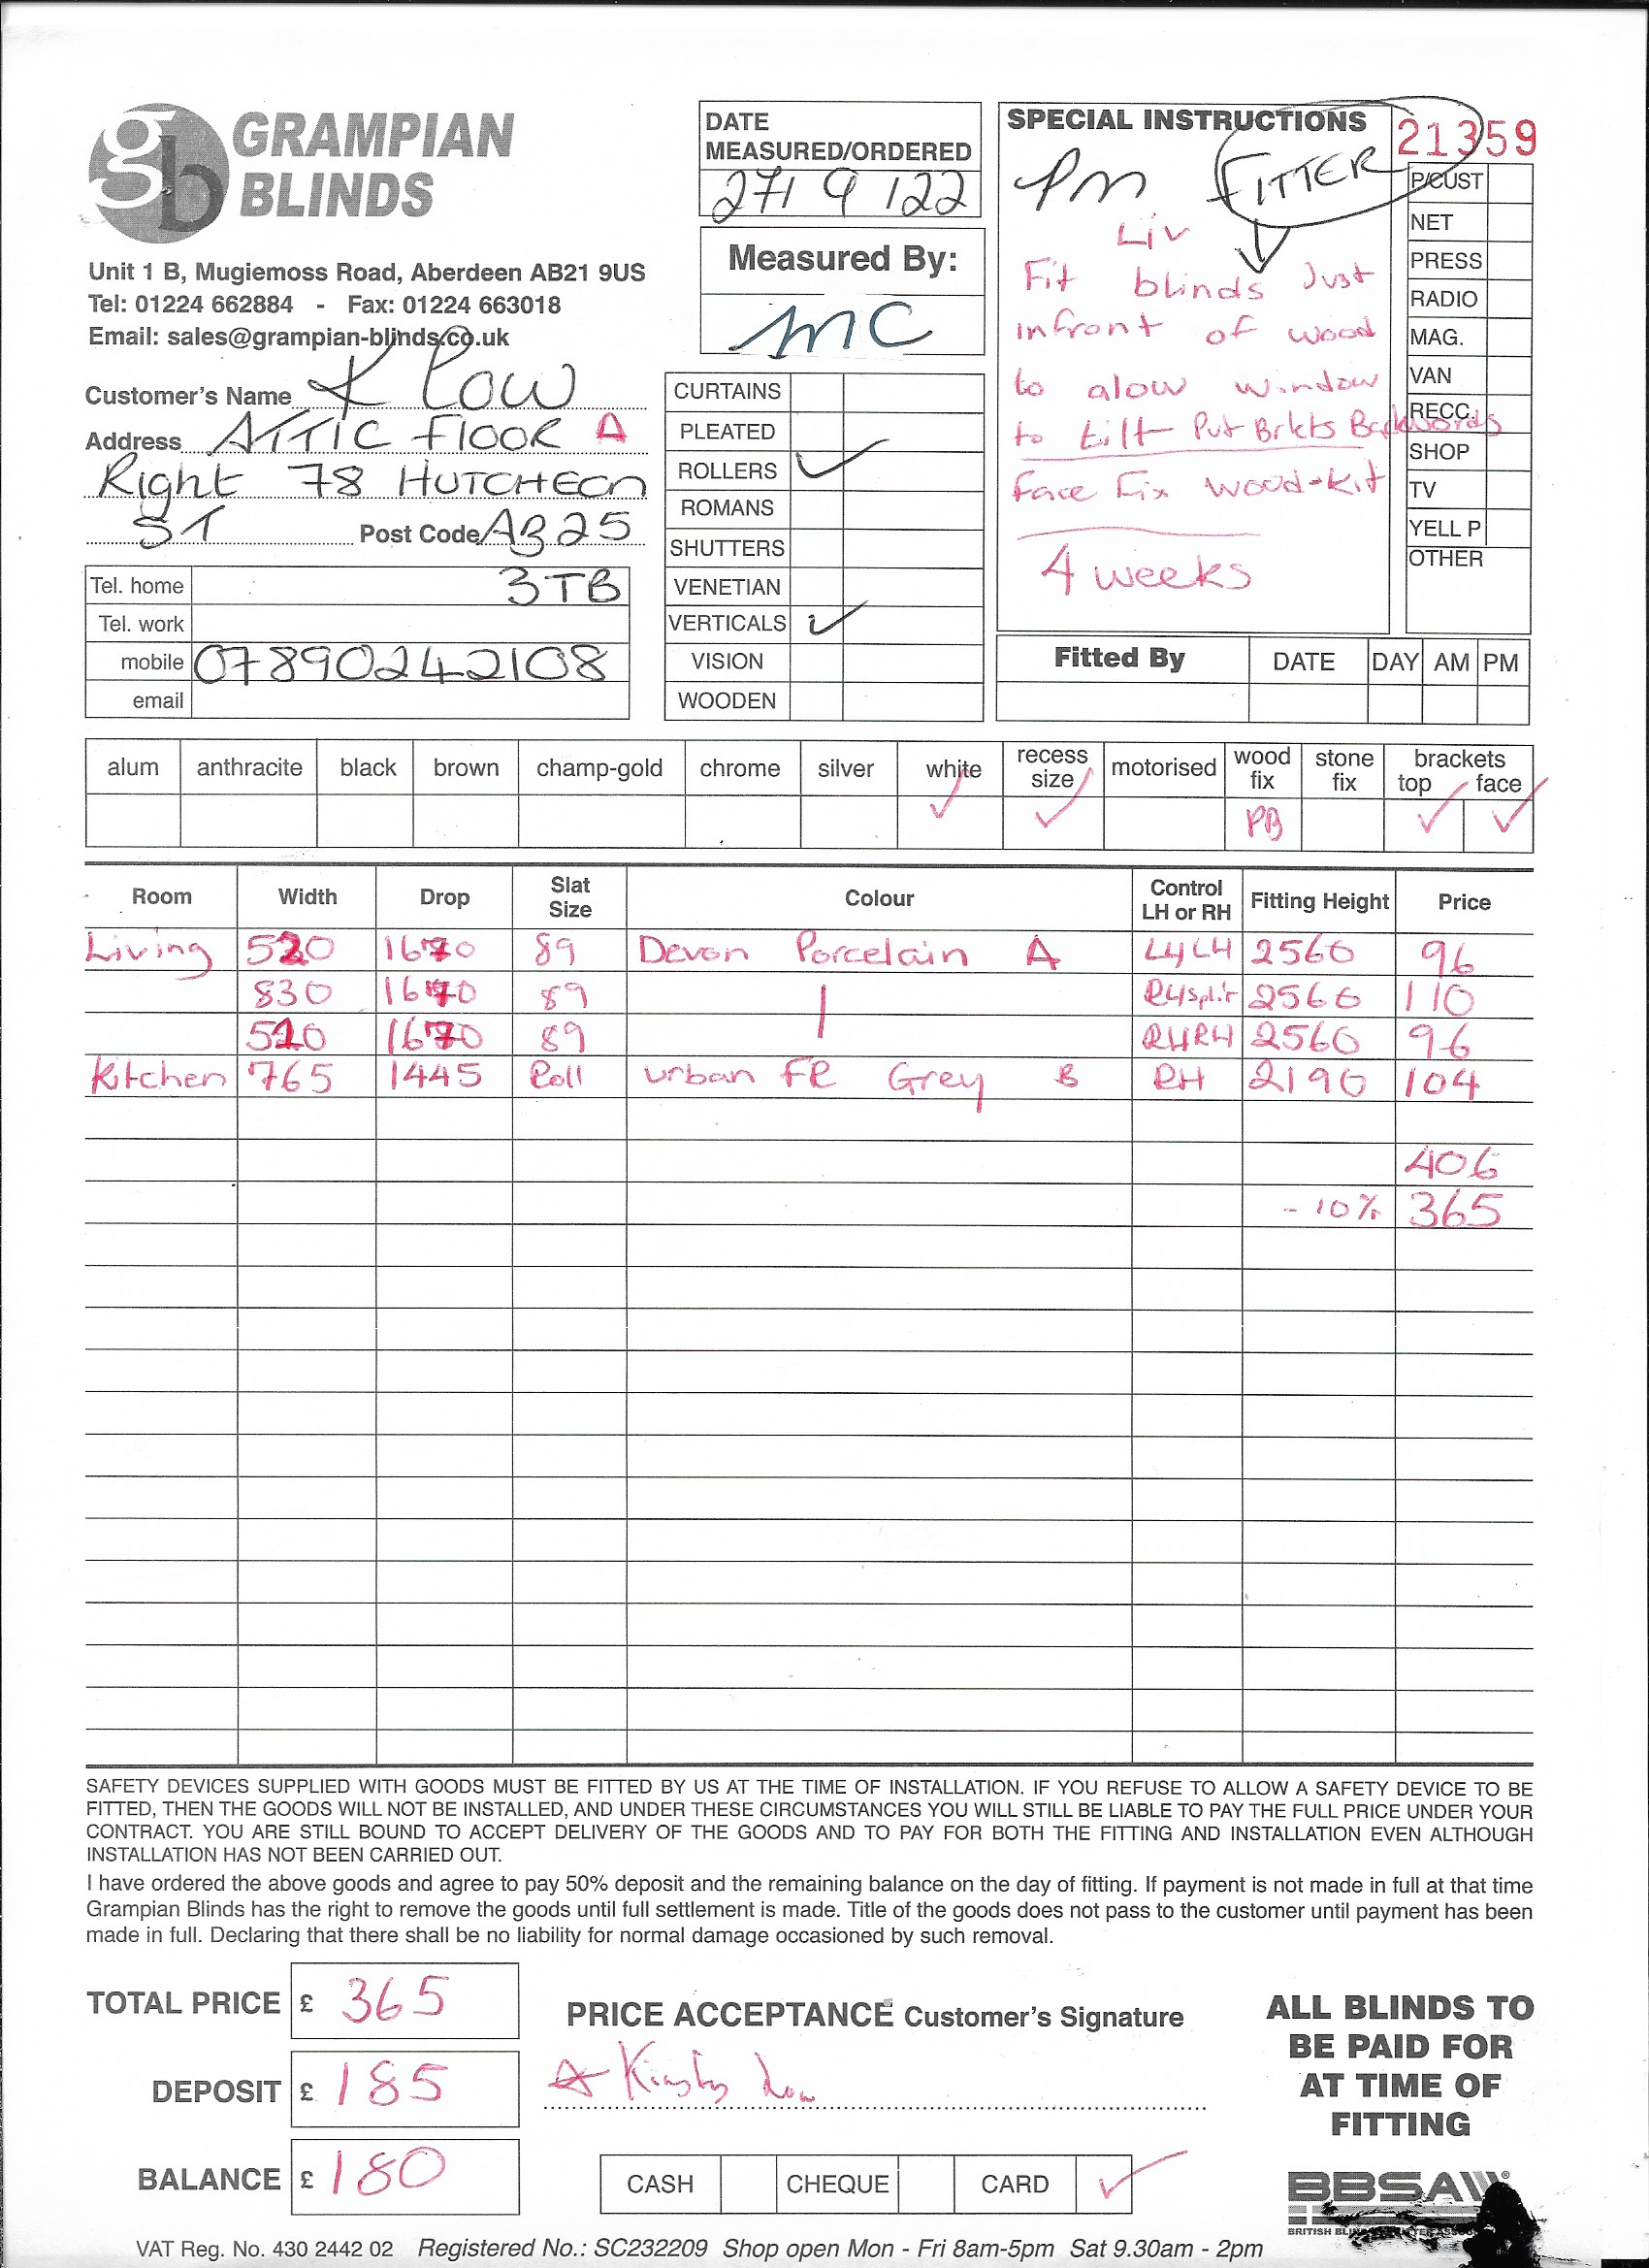 gb GRAMPIAN BLINDS
Unit 1 B, Mugiemoss Road, Aberdeen AB21 9US
Tel: 01224 662884 - Fax: 01224 663018
Email: sales@grampian-blinds.co.uk
Customer's Name K Low
Address ATTIC FLOOR A
Right 78 HUTCHEON
ST Post Code AB25
Tel. home 3TB
Tel. work
mobile 07890242108
email
DATE
MEASURED/ORDERED
27/9/22
Measured By:
MC
CURTAINS
PLEATED
ROLLERS ✓
ROMANS
SHUTTERS
VENETIAN
VERTICALS ✓
VISION
WOODEN
SPECIAL INSTRUCTIONS
PM FITTER
Liv
Fit blinds Just
infront of wood
to alow window
to tilt Put Brkts Backwords
Face Fix wood-kit
4 weeks
21359
P/CUST
NET
PRESS
RADIO
MAG.
VAN
RECC.
SHOP
TV
YELL P
OTHER
Fitted By DATE DAY AM PM
alum anthracite black brown champ-gold chrome silver white recess size motorised wood fix stone fix brackets top face
✓ ✓ PB ✓ ✓
Room Width Drop Slat Size Colour Control LH or RH Fitting Height Price
Living 520 1670 89 Devon Porcelain A LHLH 2560 96
830 1670 89 | RHSplit 2560 110
510 1670 89 RHRH 2560 96
Kitchen 765 1445 Roll Urban FR Grey B RH 2190 104
406
- 10% 365
SAFETY DEVICES SUPPLIED WITH GOODS MUST BE FITTED BY US AT THE TIME OF INSTALLATION. IF YOU REFUSE TO ALLOW A SAFETY DEVICE TO BE
FITTED, THEN THE GOODS WILL NOT BE INSTALLED, AND UNDER THESE CIRCUMSTANCES YOU WILL STILL BE LIABLE TO PAY THE FULL PRICE UNDER YOUR
CONTRACT. YOU ARE STILL BOUND TO ACCEPT DELIVERY OF THE GOODS AND TO PAY FOR BOTH THE FITTING AND INSTALLATION EVEN ALTHOUGH
INSTALLATION HAS NOT BEEN CARRIED OUT.
I have ordered the above goods and agree to pay 50% deposit and the remaining balance on the day of fitting. If payment is not made in full at that time
Grampian Blinds has the right to remove the goods until full settlement is made. Title of the goods does not pass to the customer until payment has been
made in full. Declaring that there shall be no liability for normal damage occasioned by such removal.
TOTAL PRICE £ 365
DEPOSIT £ 185
BALANCE £ 180
PRICE ACCEPTANCE Customer's Signature
Low
CASH CHEQUE CARD ✓
ALL BLINDS TO
BE PAID FOR
AT TIME OF
FITTING
BBSA
BRITISH
VAT Reg. No. 430 2442 02 Registered No.: SC232209 Shop open Mon - Fri 8am-5pm Sat 9.30am - 2pm